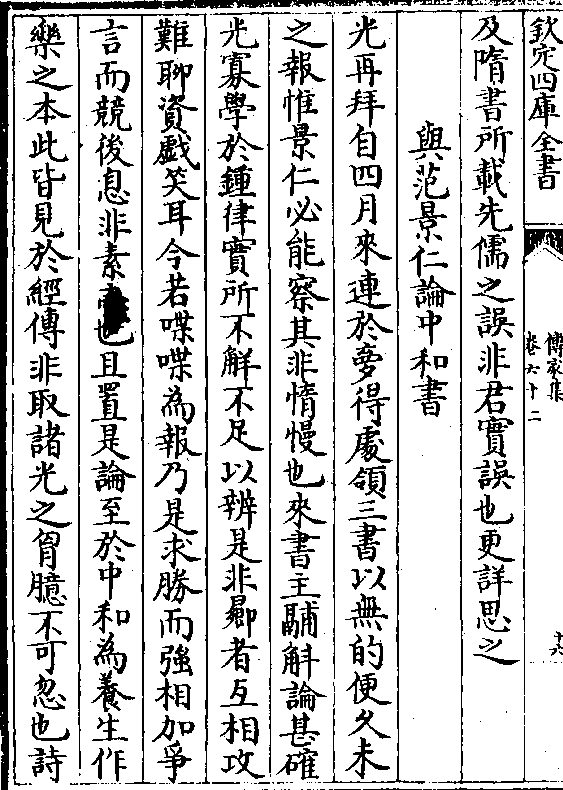 欽定四庫全書
傳家集
卷六十二
十六
及隋書所載先儒之誤非君實誤也更詳思之
與范景仁論中和書
光再拜自四月來連於夢得處領三書以無的便久未
之報惟景仁必能察其非惰慢也來書主鬴斛論甚確
光寡學於鍾律實所不解不足以辨是非曏者互相攻
難聊資戲笑耳今若喋喋為報乃是求勝而強相加爭
言而競後息非素也且置是論至於中和為養生作
樂之本此皆見於經傳非取諸光之胷臆不可忽也詩